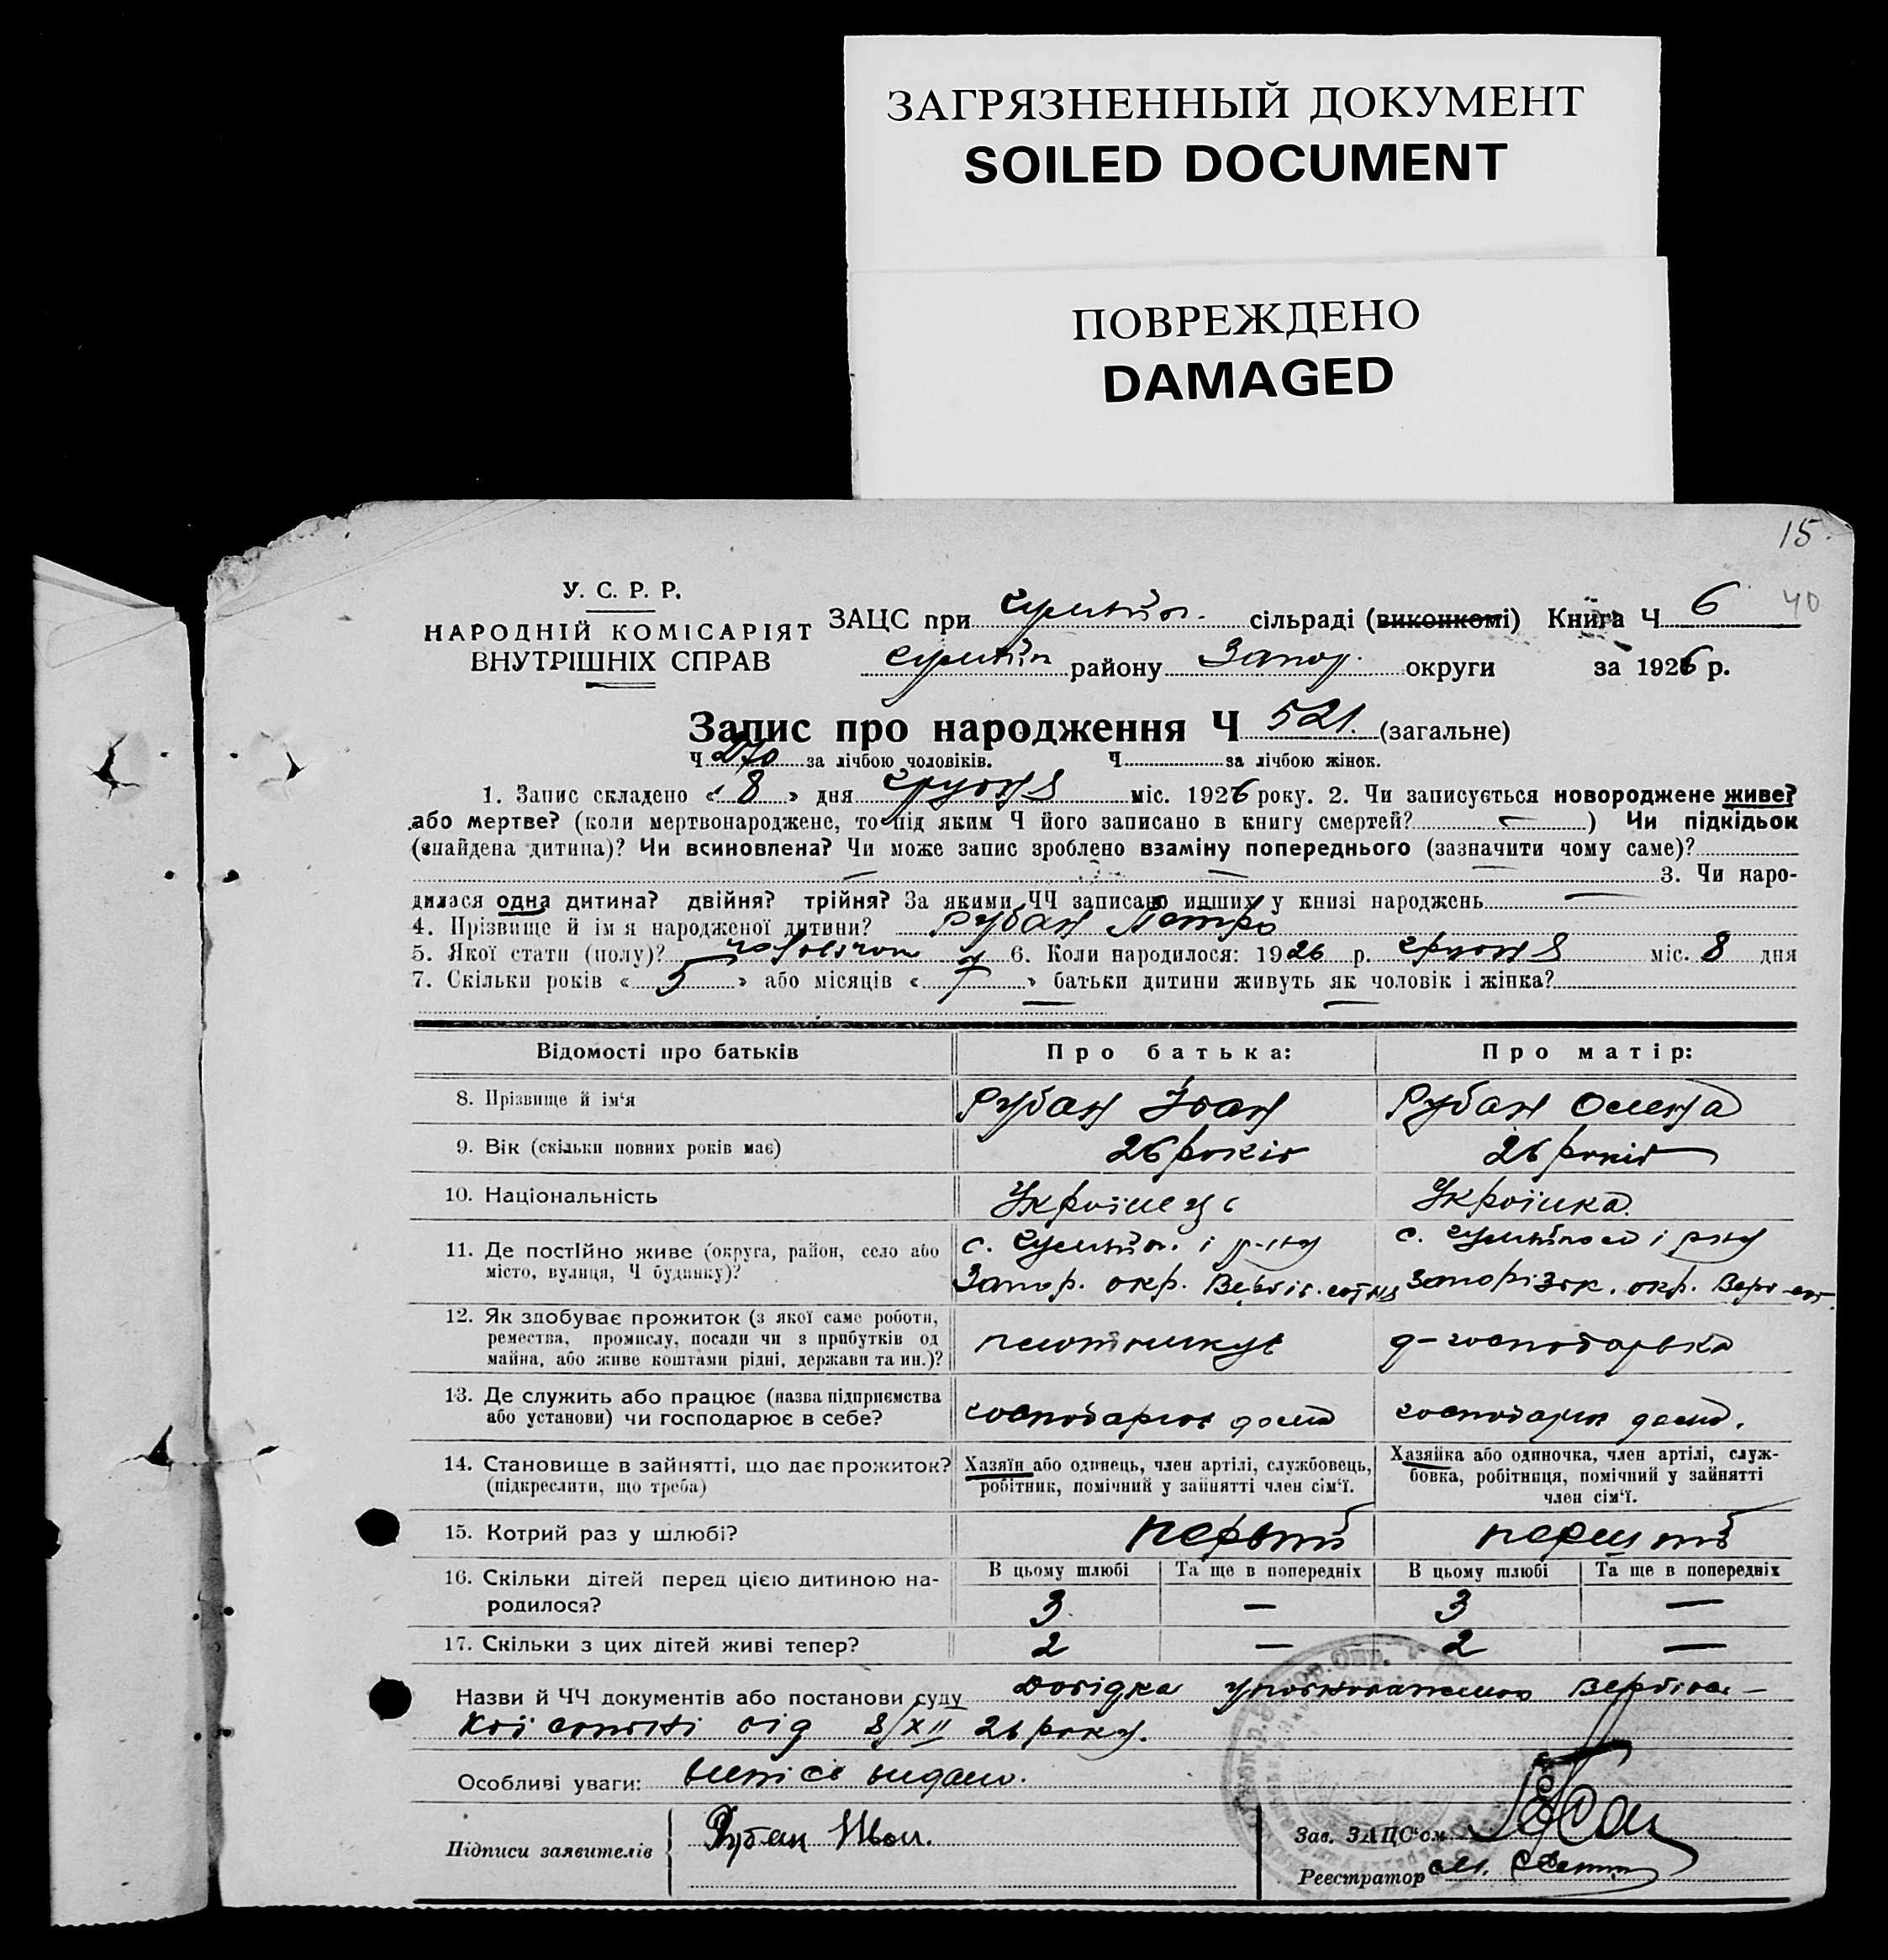 ЗАГРЯЗНЕННЫЙ ДОКУМЕНТ
SOILED DOCUMENT
ПОВРЕЖДЕНО
DAMAGED
15.
40
У. С. Р. Р.
НАРОДНІЙ КОМІСАРІЯТ
ВНУТРІШНІХ СПРАВ
ЗАЦС при сільраді (виконкомі) Книга Ч 6
району Запор. округи за 1926 р.
Запис про народження Ч 521. (загальне)
Ч 270 за лічбою чоловіків. Ч за лічбою жінок.
1. Запис складено « 8 » дня грудня міс. 1926 року. 2. Чи записується новороджене живе?
або мертве? (коли мертвонароджене, то під яким Ч його записано в книгу смертей? — ) Чи підкідьок
(знайдена дитина)? Чи всиновлена? Чи може запис зроблено взаміну попереднього (зазначити чому саме)?
— — — 3. Чи наро-
дилася одна дитина? двійня? трійня? За якими ЧЧ записано инших у книзі народжень —
4. Прізвище й ім я народженої дитини? Рубан Петро
5. Якої стати (полу)? 6. Коли народилося: 1926 р. грудня міс. 8 дня
7. Скільки років « 5 » або місяців « 7 » батьки дитини живуть як чоловік і жінка?
Відомості про батьків Про батька: Про матір:
8. Прізвище й ім‘я Рубан Іван Рубан Олена
9. Вік (скільки повних років має) 26 років 26 років
10. Національність Українець Українка.
11. Де постІйно живе (округа, район, село або
місто, вулиця, Ч будинку)?
с. і р-ну
Запор. окр.
с. і р-ну
Запорізьк. окр.
12. Як здобуває прожиток (з якої саме роботи,
ремества, промислу, посади чи з прибутків од
майна, або живе коштами рідні, держави та ин.)?
плотникує д-господарька
13. Де служить або працює (назва підприємства
або установи) чи господарює в себе?
господарює дома господарює дома.
14. Становище в зайнятті, що дає прожиток?
(підкреслити, що треба)
Хазяїн або одинець, член артілі, службовець,
робітник, помічний у зайнятті член сім‘ї.
Хазяйка або одиночка, член артілі, служ-
бовка, робітниця, помічний у зайнятті
член сім‘ї.
15. Котрий раз у шлюбі?
16. Скільки дітей перед цією дитиною на-
родилося?
В цьому шлюбі Та ще в попередніх В цьому шлюбі Та ще в попередніх
3 — 3 —
17. Скільки з цих дітей живі тепер? 2 — 2 —
Назви й ЧЧ документів або постанови суду Довідка
від 8/XII 26 року.
Особливі уваги: видано.
Підписи заявителів Рубан Иван.
Зав. ЗАЦС‘ом
Реестратор